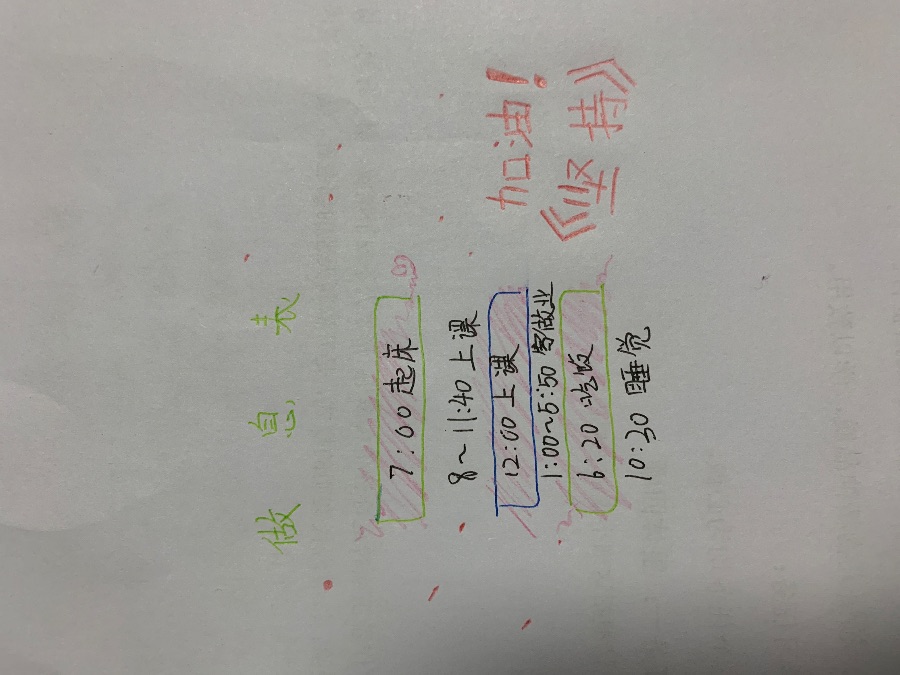 做息表
7:00起床
8~11:40上课
12:00上课
1:00~5:50写做业
6:20吃饭
10:30睡觉
加油!
《坚持》